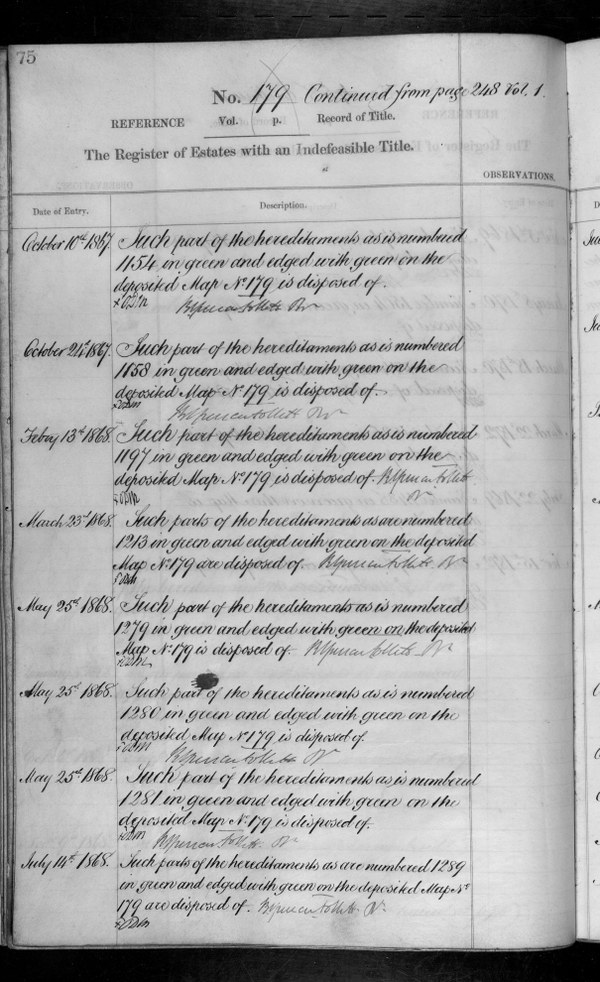 75
No. 179 Continued from page 248 Vol. 1.
REFERENCE Vol. p. Record of Title.
The Register of Estates with an Indefeasible Title.
OBSERVATIONS.
Date of Entry. Description.
October 10th 1867. Such part of the hereditaments as is numbered
1154 in green and edged with green on the
deposited Map No. 179 is disposed of.
October 24th 1867. Such part of the hereditaments as is numbered
1158 in green and edged with green on the
deposited Map No. 179 is disposed of.
Febry 13th 1868. Such part of the hereditaments as is numbered
1197 in green and edged with green on the
deposited Map No. 179 is disposed of.
March 23rd 1868. Such parts of the hereditaments as are numbered
1213 in green and edged with green on the deposited
Map No. 179 are disposed of.
May 25th 1868. Such part of the hereditaments as is numbered
1279 in green and edged with green on the deposited
Map No. 179 is disposed of.
May 25th 1868. Such part of the hereditaments as is numbered
1280 in green and edged with green on the
deposited Map No. 179 is disposed of.
May 25th 1868. Such part of the hereditaments as is numbered
1281 in green and edged with green on the
deposited Map No. 179 is disposed of.
July 14th 1868. Such parts of the hereditaments as are numbered 1289
in green and edged with green on the deposited Map No.
179 are disposed of.